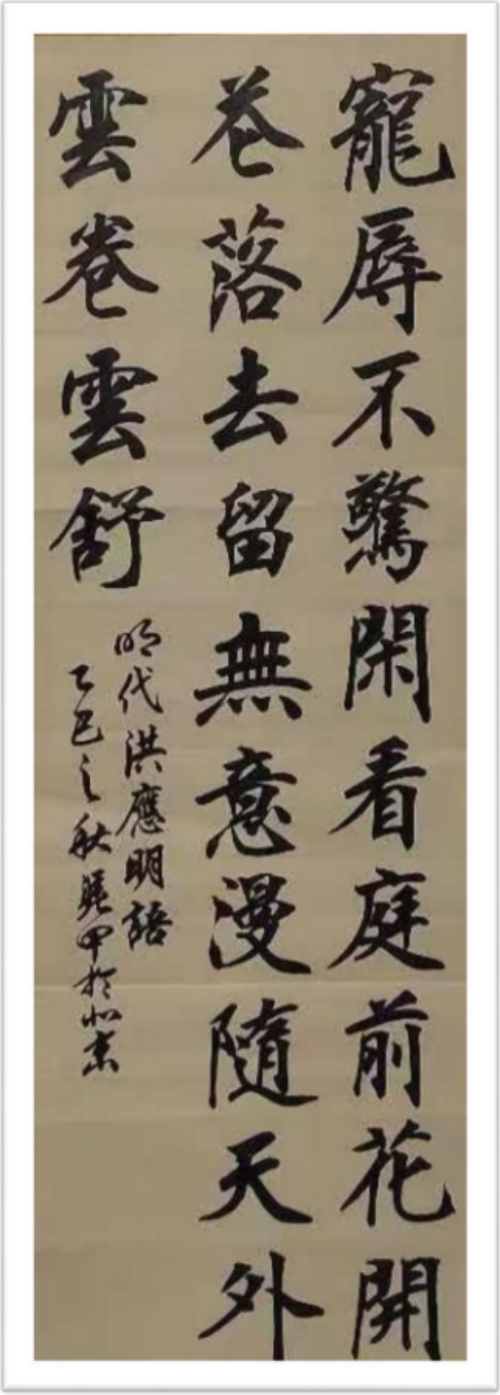 寵辱不驚閑看庭前花開
花落去留無意漫隨天外
雲卷雲舒
明代洪應明語
乙巳之秋甲於北京